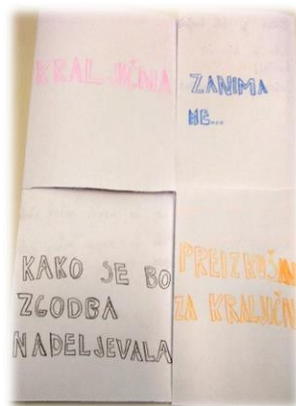 KRALJIČNA
ZANIMA
ME...
KAKO SE BO
ZGODBA
NADELJEVALA
ZA KRALJIČN